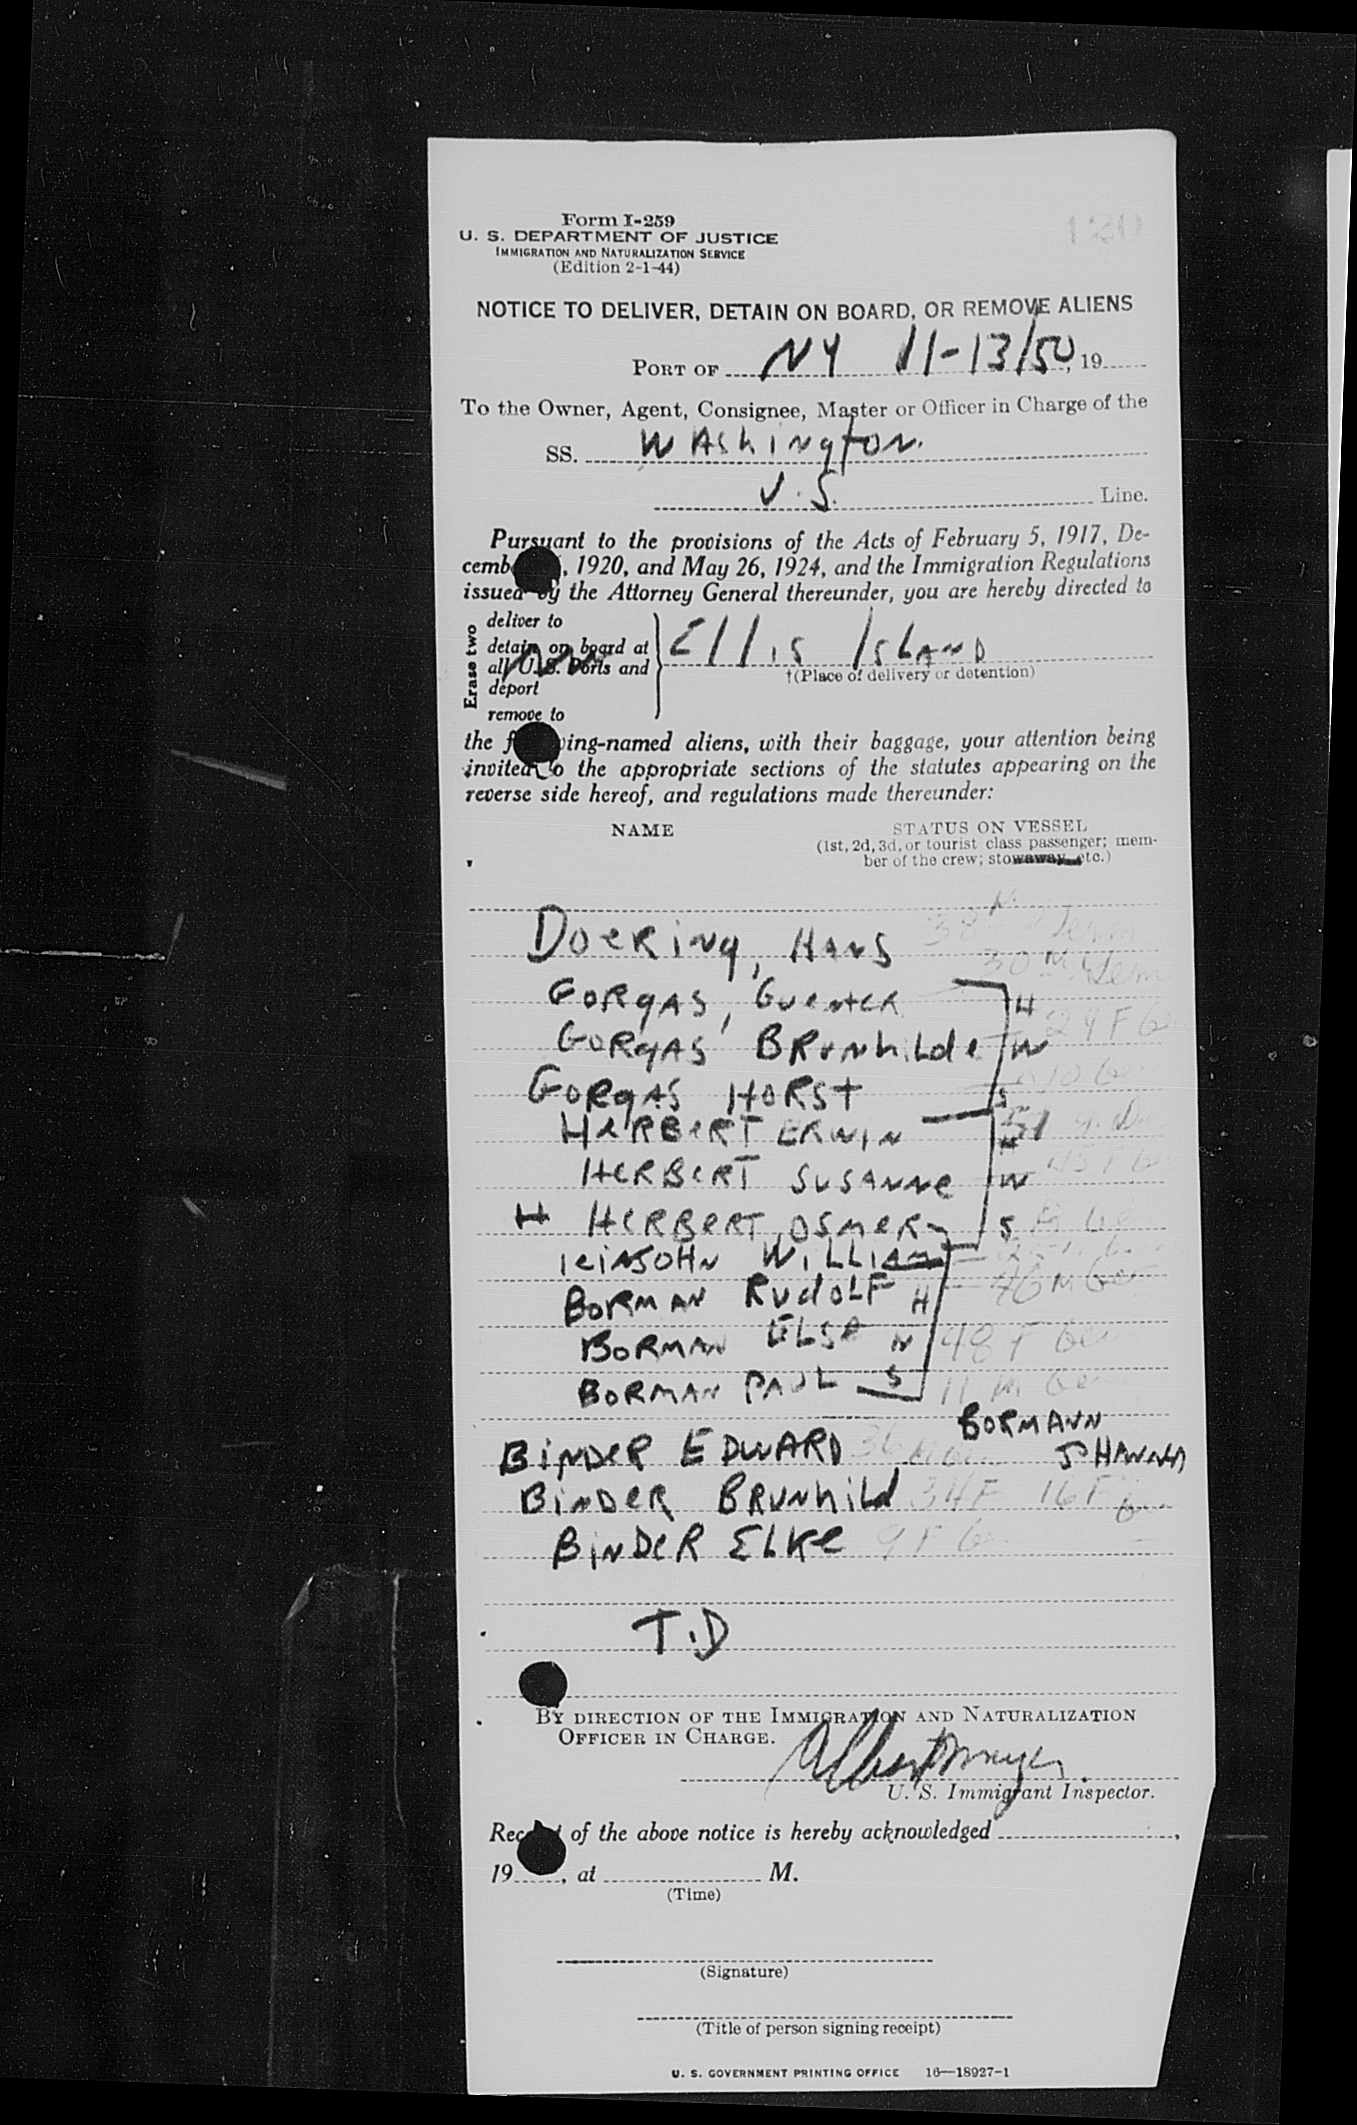 Form I-259
U. S. DEPARTMENT OF JUSTICE
IMMIGRATION AND NATURALIZATION SERVICE
(Edition 2-1-44)
NOTICE TO DELIVER, DETAIN ON BOARD, OR REMOVE ALIENS
PORT OF NY 11-13/50, 19
To the Owner, Agent, Consignee, Master or Officer in Charge of the
SS. WAshington.
U.S. Line.
Pursuant to the provisions of the Acts of February 5, 1917, De-
cemb , 1920, and May 26, 1924, and the Immigration Regulations
issued by the Attorney General thereunder, you are hereby directed to
Erase two
deliver to
detain on board at
all U. S. Ports and
deport
remove to
Ellis IsLAND
†(Place of delivery or detention)
the f ing-named aliens, with their baggage, your attention being
invited to the appropriate sections of the statutes appearing on the
reverse side hereof, and regulations made thereunder:
NAME STATUS ON VESSEL
(1st, 2d, 3d, or tourist class passenger; mem-
ber of the crew; stowaway, etc.)
DoeRing, HANS 38
GORgAS, GuenteR 30 M H
GORgAS BRunhiLde W 29 F
GORgAS HORSt S
HeRBeRT ERWIN 51
HeRBeRT SUSANNe W
H HeRBeRT, OSMeR S
WiLLIAM
BORMAN RudoLF H 46 M Ger
BORMAN ELSe W 48 F Ger
BORMAN PAUL S 11 M Ger
BORMANN
BINDeR EDWARD 36 JOHANNA
BINDeR BRUNhiLd 34 F 16 F
BiNDeR ELKe 9 F Ger
T.D
BY DIRECTION OF THE IMMIGRATION AND NATURALIZATION
OFFICER IN CHARGE.
Albert Meyer
U. S. Immigrant Inspector.
Rec of the above notice is hereby acknowledged ,
19 , at M.
(Time)
(Signature)
(Title of person signing receipt)
U. S. GOVERNMENT PRINTING OFFICE 16—18927-1